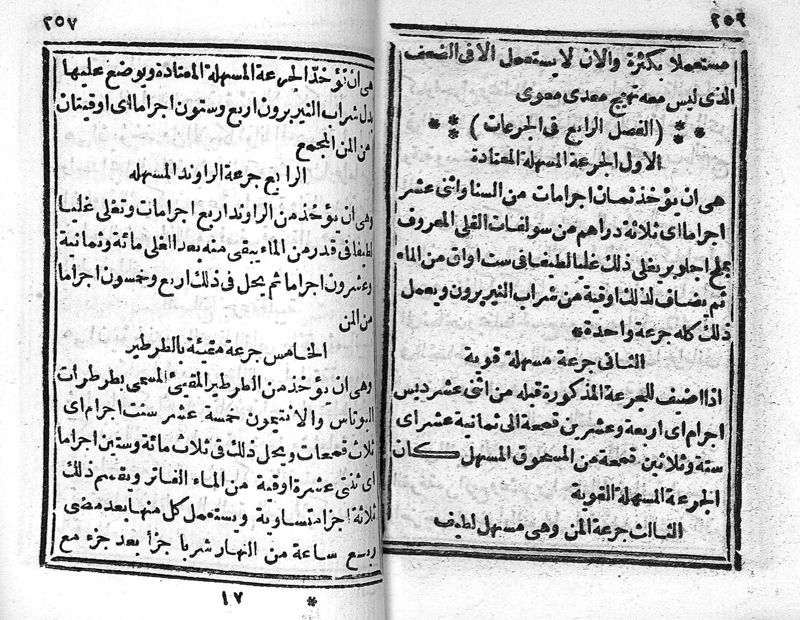 ٢٥٦
مستعملا بكثرة والان لا يستعمل الا فى الضعف
الذى ليس معه تهيج معدى معوى
* * (الفصل الرابع فى الجرعات) * *
الاول الجرعة المسهلة المعتادة
هى ان يؤخذ ثمان اجرامات من السنا واثنى عشر
اجراما اى ثلاثة دراهم من سولفات القلى المعروف
بملح اجلوبر يغلى ذلك غليا لطيفا فى ست اواق من الماء
ثم يضاف لذلك اوقية من شراب النيربرون ويعمل
ذلك كله جرعة واحدة *
الثانى جرعة مسهلة قوية
اذا اضيف للجرعة المذكورة قبله من اثنى عشر ديس
اجرام اى اربعة وعشرين قمحة الى ثمانية عشر اى
ستة وثلاثين قمحة من المسحوق المسهل كان
الجرعة المسهلة القوية
الثالث جرعة المن وهى مسهل لطيف
٢٥٧
هى ان تؤخذ الجرعة المسهلة المعتادة ويوضع عليها
بدل شراب النيربرون اربع وستون اجراما اى اوقيتان
من المن المجمع
الرابع جرعة الراوند المسهله
وهى ان يؤخذ من الراوند اربع اجرامات وتغلى غليا
لطيفا فى قدر من الماء يبقى منه بعد الغلى مائة وثمانية
وعشرون اجراما ثم يحل فى ذلك اربع وخمسون اجراما
من المن
الخامس جرعة مقيئة بالطرطير
وهى ان يؤخذ من الطرطير المقيئ المسمى بطرطرات
البوتاس والانتيمون خمسة عشر سنت اجرام اى
ثلاث قمحات ويحل ذلك فى ثلاث مائة وستين اجراما
اى ثنتى عشرة اوقية من الماء الفاتر ويقسم ذلك
ثلاثة اجزا متساوية ويستعمل كل منها بعد مضى
ربع ساعة من النهار شربا جزأ بعد جزء مع
١٧ *